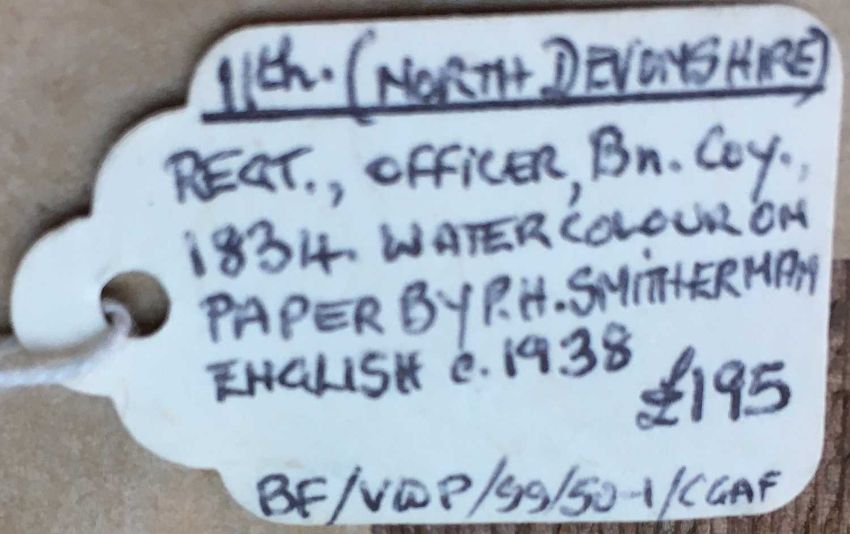 11th. (NORTH DEVONSHIRE)
REGT., OFFICER, Bn. Coy.,
1834. WATERCOLOUR ON
PAPER BY P.H. SMITHERMAN
ENGLISH c. 1938
£195
BF/VWP/99/50-1/CGAF